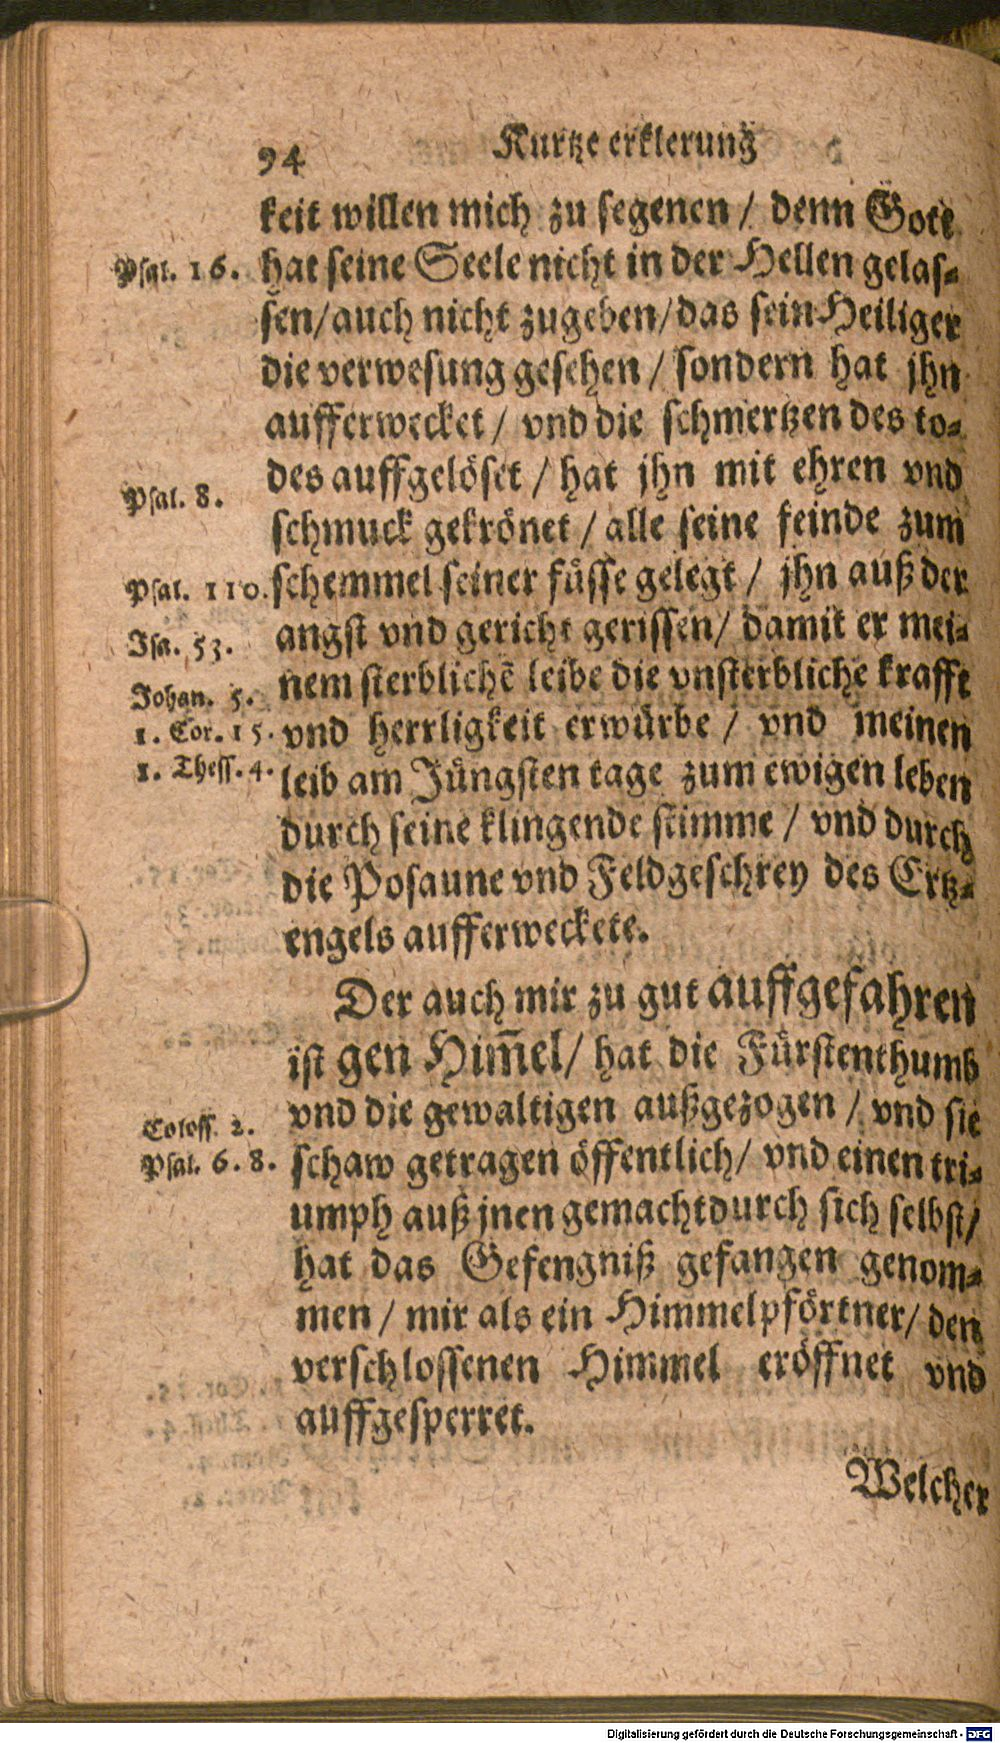 94 Kurtze erklerung
keit willen mich zu segenen / denn Gott
Psal. 16. hat seine Seele nicht in der Hellen gelas-
sen/auch nicht zugeben/das sein Heiliger
die verwesung gesehen / sondern hat jhn
aufferwecket / vnd die schmertzen des to-
des auffgelöset / hat jhn mit ehren vnd
Psal. 8.
schmuck gekrönet / alle seine feinde zum
Psal. 110. schemmel seiner füsse gelegt / jhn auß der
Isa. 53. angst vnd gericht gerissen/ damit er mei-
Johan. 5. nem sterblichẽ leibe die vnsterbliche krafft
1. Cor. 15. vnd herrligkeit erwürbe / vnd meinen
1. Thess. 4. leib am Jüngsten tage zum ewigen leben
durch seine klingende stimme / vnd durch
die Posaune vnd Feldgeschrey des Ertz-
engels aufferweckete.
Der auch mir zu gut auffgefahren
ist gen Him̃el/ hat die Fürstenthumb
Coloss. 2. vnd die gewaltigen außgezogen / vnd sie
Psal. 6. 8. schaw getragen öffentlich/ vnd einen tri-
umph auß jnen gemacht durch sich selbst/
hat das Gefengniß gefangen genom-
men / mir als ein Himmelpförtner/ den
verschlossenen Himmel eröffnet vnd
auffgesperret.
Welcher
Digitalisierung gefördert durch die Deutsche Forschungsgemeinschaft - DFG